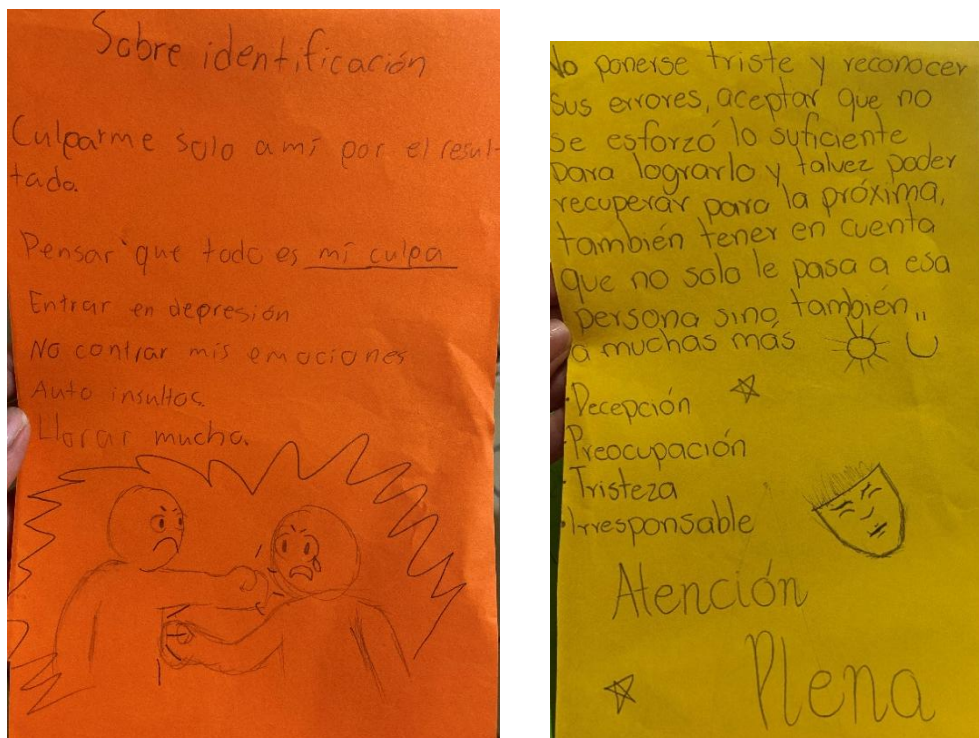 Sobre identificación
Culparme solo a mí por el resul-
tado.
Pensar que todo es mi culpa
Entrar en depresión
No contrar mis emociones
Auto insultos.
Llorar mucho.
No ponerse triste y reconocer
sus errores, aceptar que no
se esforzó lo suficiente
para lograrlo y talvez poder
recuperar para la próxima,
también tener en cuenta
que no solo le pasa a esa
persona sino también
a muchas más
·Decepción
·Preocupación
·Tristeza
·Irresponsable
Atención
Plena